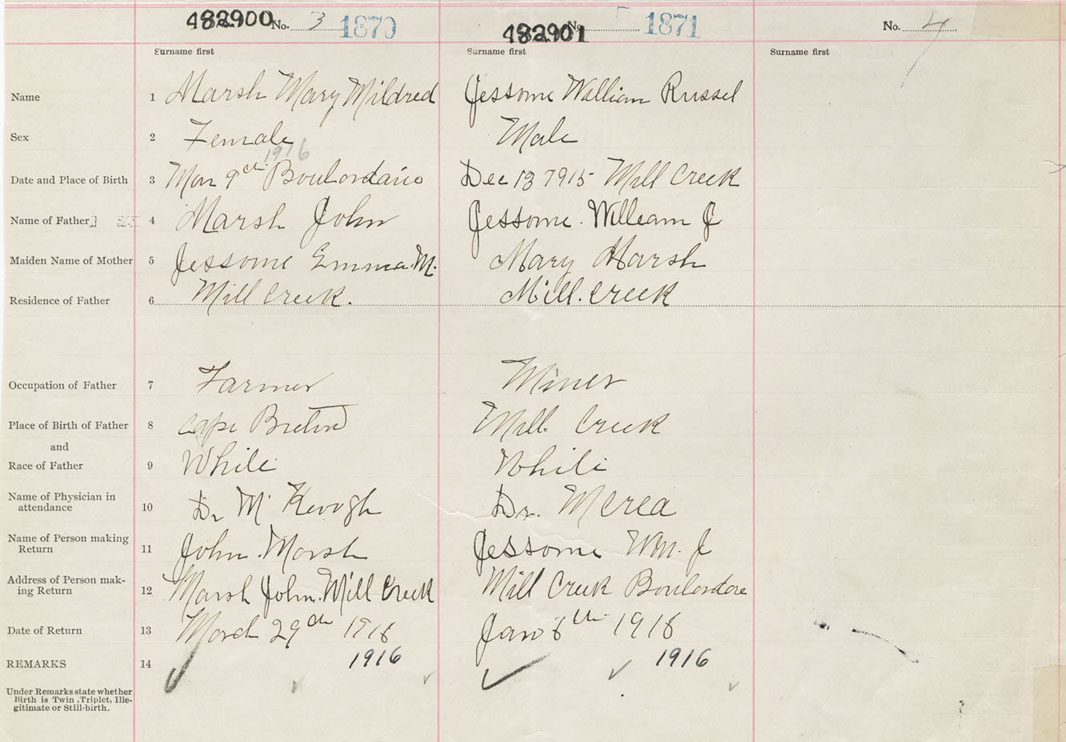 482900 No. 3 1870 482901 No. 1871 No. 4
Surname first Surname first Surname first
Name 1 Marsh Mary Mildred Jessome William Russel
Sex 2 Female Male
1916
Date and Place of Birth 3 Mar 9th Dec 13 1915 Mill Creek
Name of Father 4 Marsh John Jessome. William J
Maiden Name of Mother 5 Jessome Emma. M. Mary Marsh
Residence of Father 6 Mill Creek. Mill. Creek
Occupation of Father 7 Farmer Miner
Place of Birth of Father 8 Cape Breton Mill Creek
and
Race of Father 9 White White
Name of Physician in
attendance 10 Dr Mc Keough Dr. McRea
Name of Person making
Return 11 John. Marsh Jessome Wm. J
Address of Person mak-
ing Return 12 Marsh John. Mill Creek Mill Creek
Date of Return 13 March 29th 1916 Jan 6th 1916
REMARKS 14 1916 1916
Under Remarks state whether
Birth is Twin, Triplet, Ille-
gitimate or Still-birth.